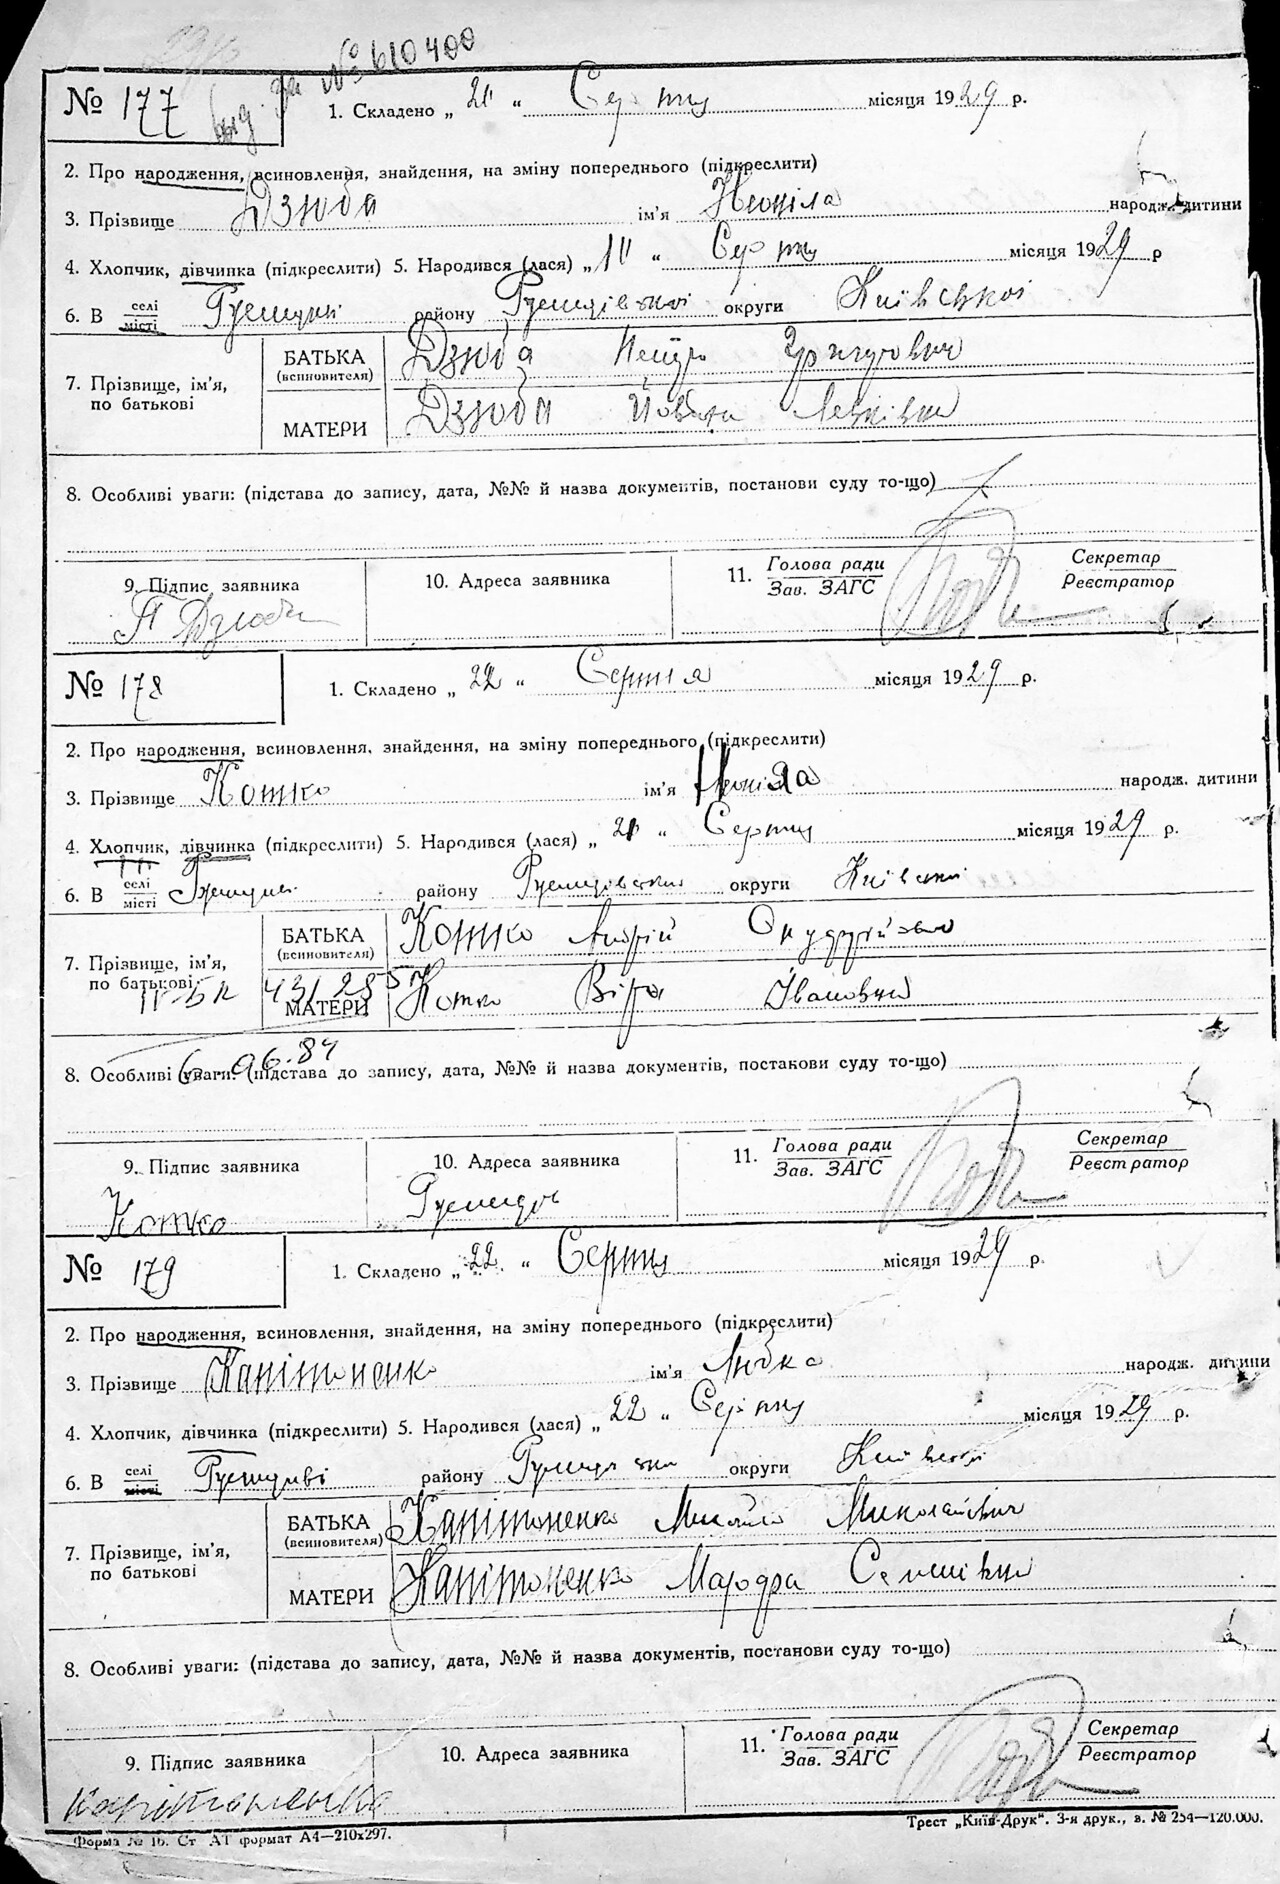 вид. за № 610400
№ 177
1. Складено „ 21 “ Серпня місяця 1929 р.
2. Про народження, всиновлення, знайдення, на зміну попереднього (підкреслити)
3. Прізвище Дзюба ім'я Неоніла народж. дитини
4. Хлопчик, дівчинка (підкреслити) 5. Народився (лася) „ “ Серпня місяця 1929 р
6. В селі/місті район у округи Київської
7. Прізвище, ім'я, по батькові
БАТЬКА (всиновителя) Дзюба Григорович
МАТЕРИ Дзюба Левківна
8. Особливі уваги: (підстава до запису, дата, №№ й назва документів, постанови суду то-що)
9. Підпис заявника 10. Адреса заявника 11. Голова ради/Зав. ЗАГС Секретар/Реєстратор
П Дзюба
№ 178
1. Складено „ 22 “ Серпня місяця 1929 р.
2. Про народження, всиновлення, знайдення, на зміну попереднього (підкреслити)
3. Прізвище Котко ім'я Неоніла народж. дитини
4. Хлопчик, дівчинка (підкреслити) 5. Народився (лася) „ 21 “ Серпня місяця 1929 р.
6. В селі/місті району округи Київської
7. Прізвище, ім'я, по батькові
БАТЬКА (всиновителя) Котко Андрій
МАТЕРИ Котко Віра Івановна
8. Особливі уваги: (підстава до запису, дата, №№ й назва документів, постанови суду то-що)
9. Підпис заявника 10. Адреса заявника 11. Голова ради/Зав. ЗАГС Секретар/Реєстратор
Котко
№ 179
1. Складено „ 22 “ Серпня місяця 1929 р.
2. Про народження, всиновлення, знайдення, на зміну попереднього (підкреслити)
3. Прізвище Капітоненко ім'я Любка народж. дитини
4. Хлопчик, дівчинка (підкреслити) 5. Народився (лася) „ 22 “ Серпня місяця 1929 р.
6. В селі/місті району округи Київської
7. Прізвище, ім'я, по батькові
БАТЬКА (всиновителя) Капітоненко Михайло Миколайович
МАТЕРИ Капітоненко Семенівна
8. Особливі уваги: (підстава до запису, дата, №№ й назва документів, постанови суду то-що)
9. Підпис заявника 10. Адреса заявника 11. Голова ради/Зав. ЗАГС Секретар/Реєстратор
Капітоненко
Форма № 1б. Ст АТ формат А4—210х297. Трест „Київ-Друк“. 3-я друк., в. № 254—120.000.